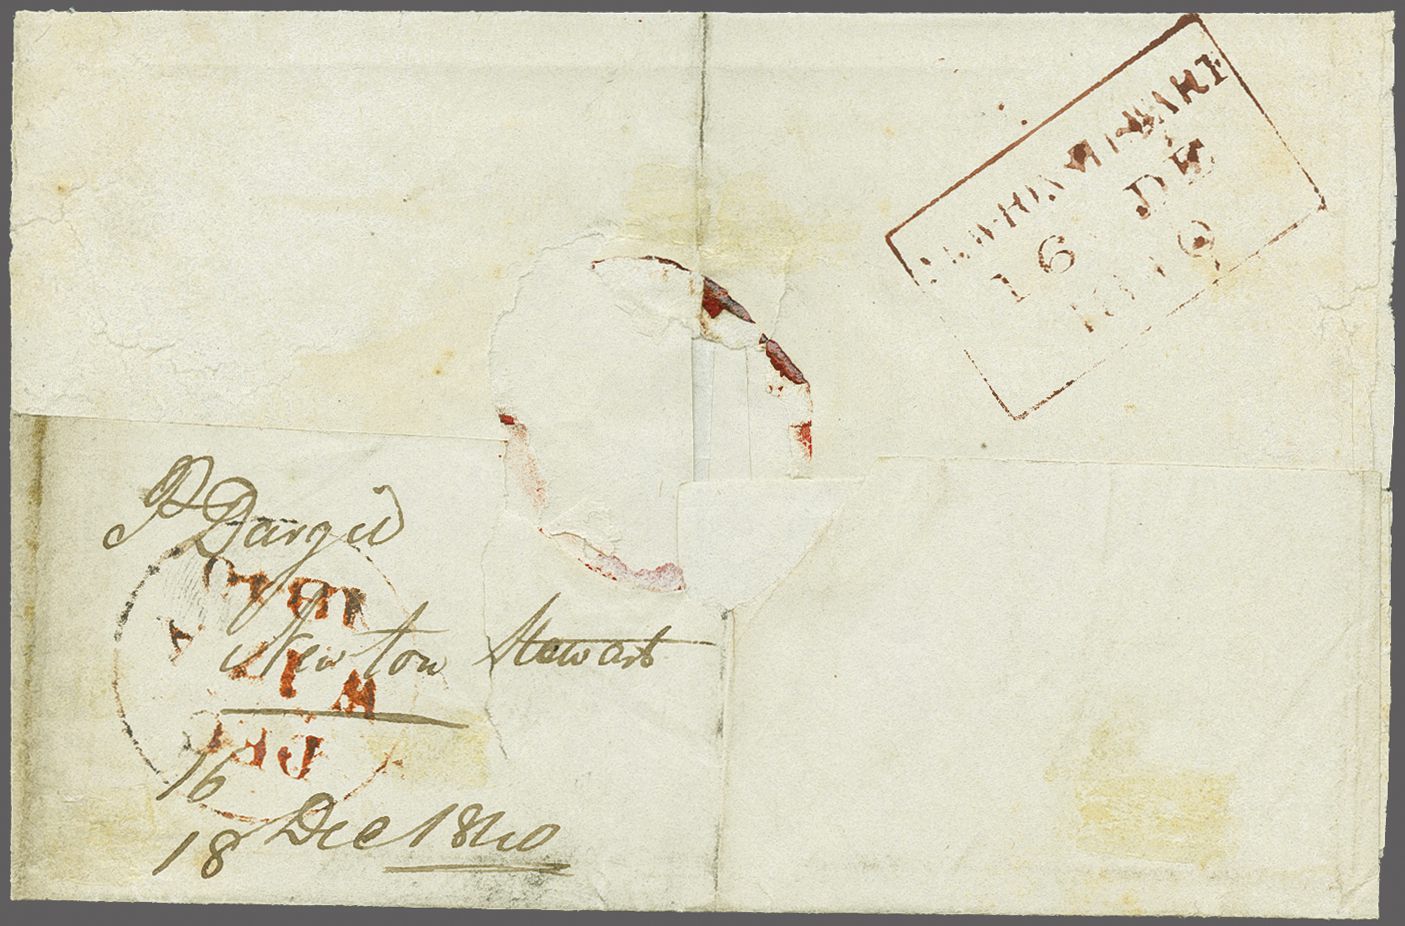 NEWTON STEWART
16 DE
1840
P Dargie
Newton Stewart
16
18 Dec 1840
1840
17
DEC